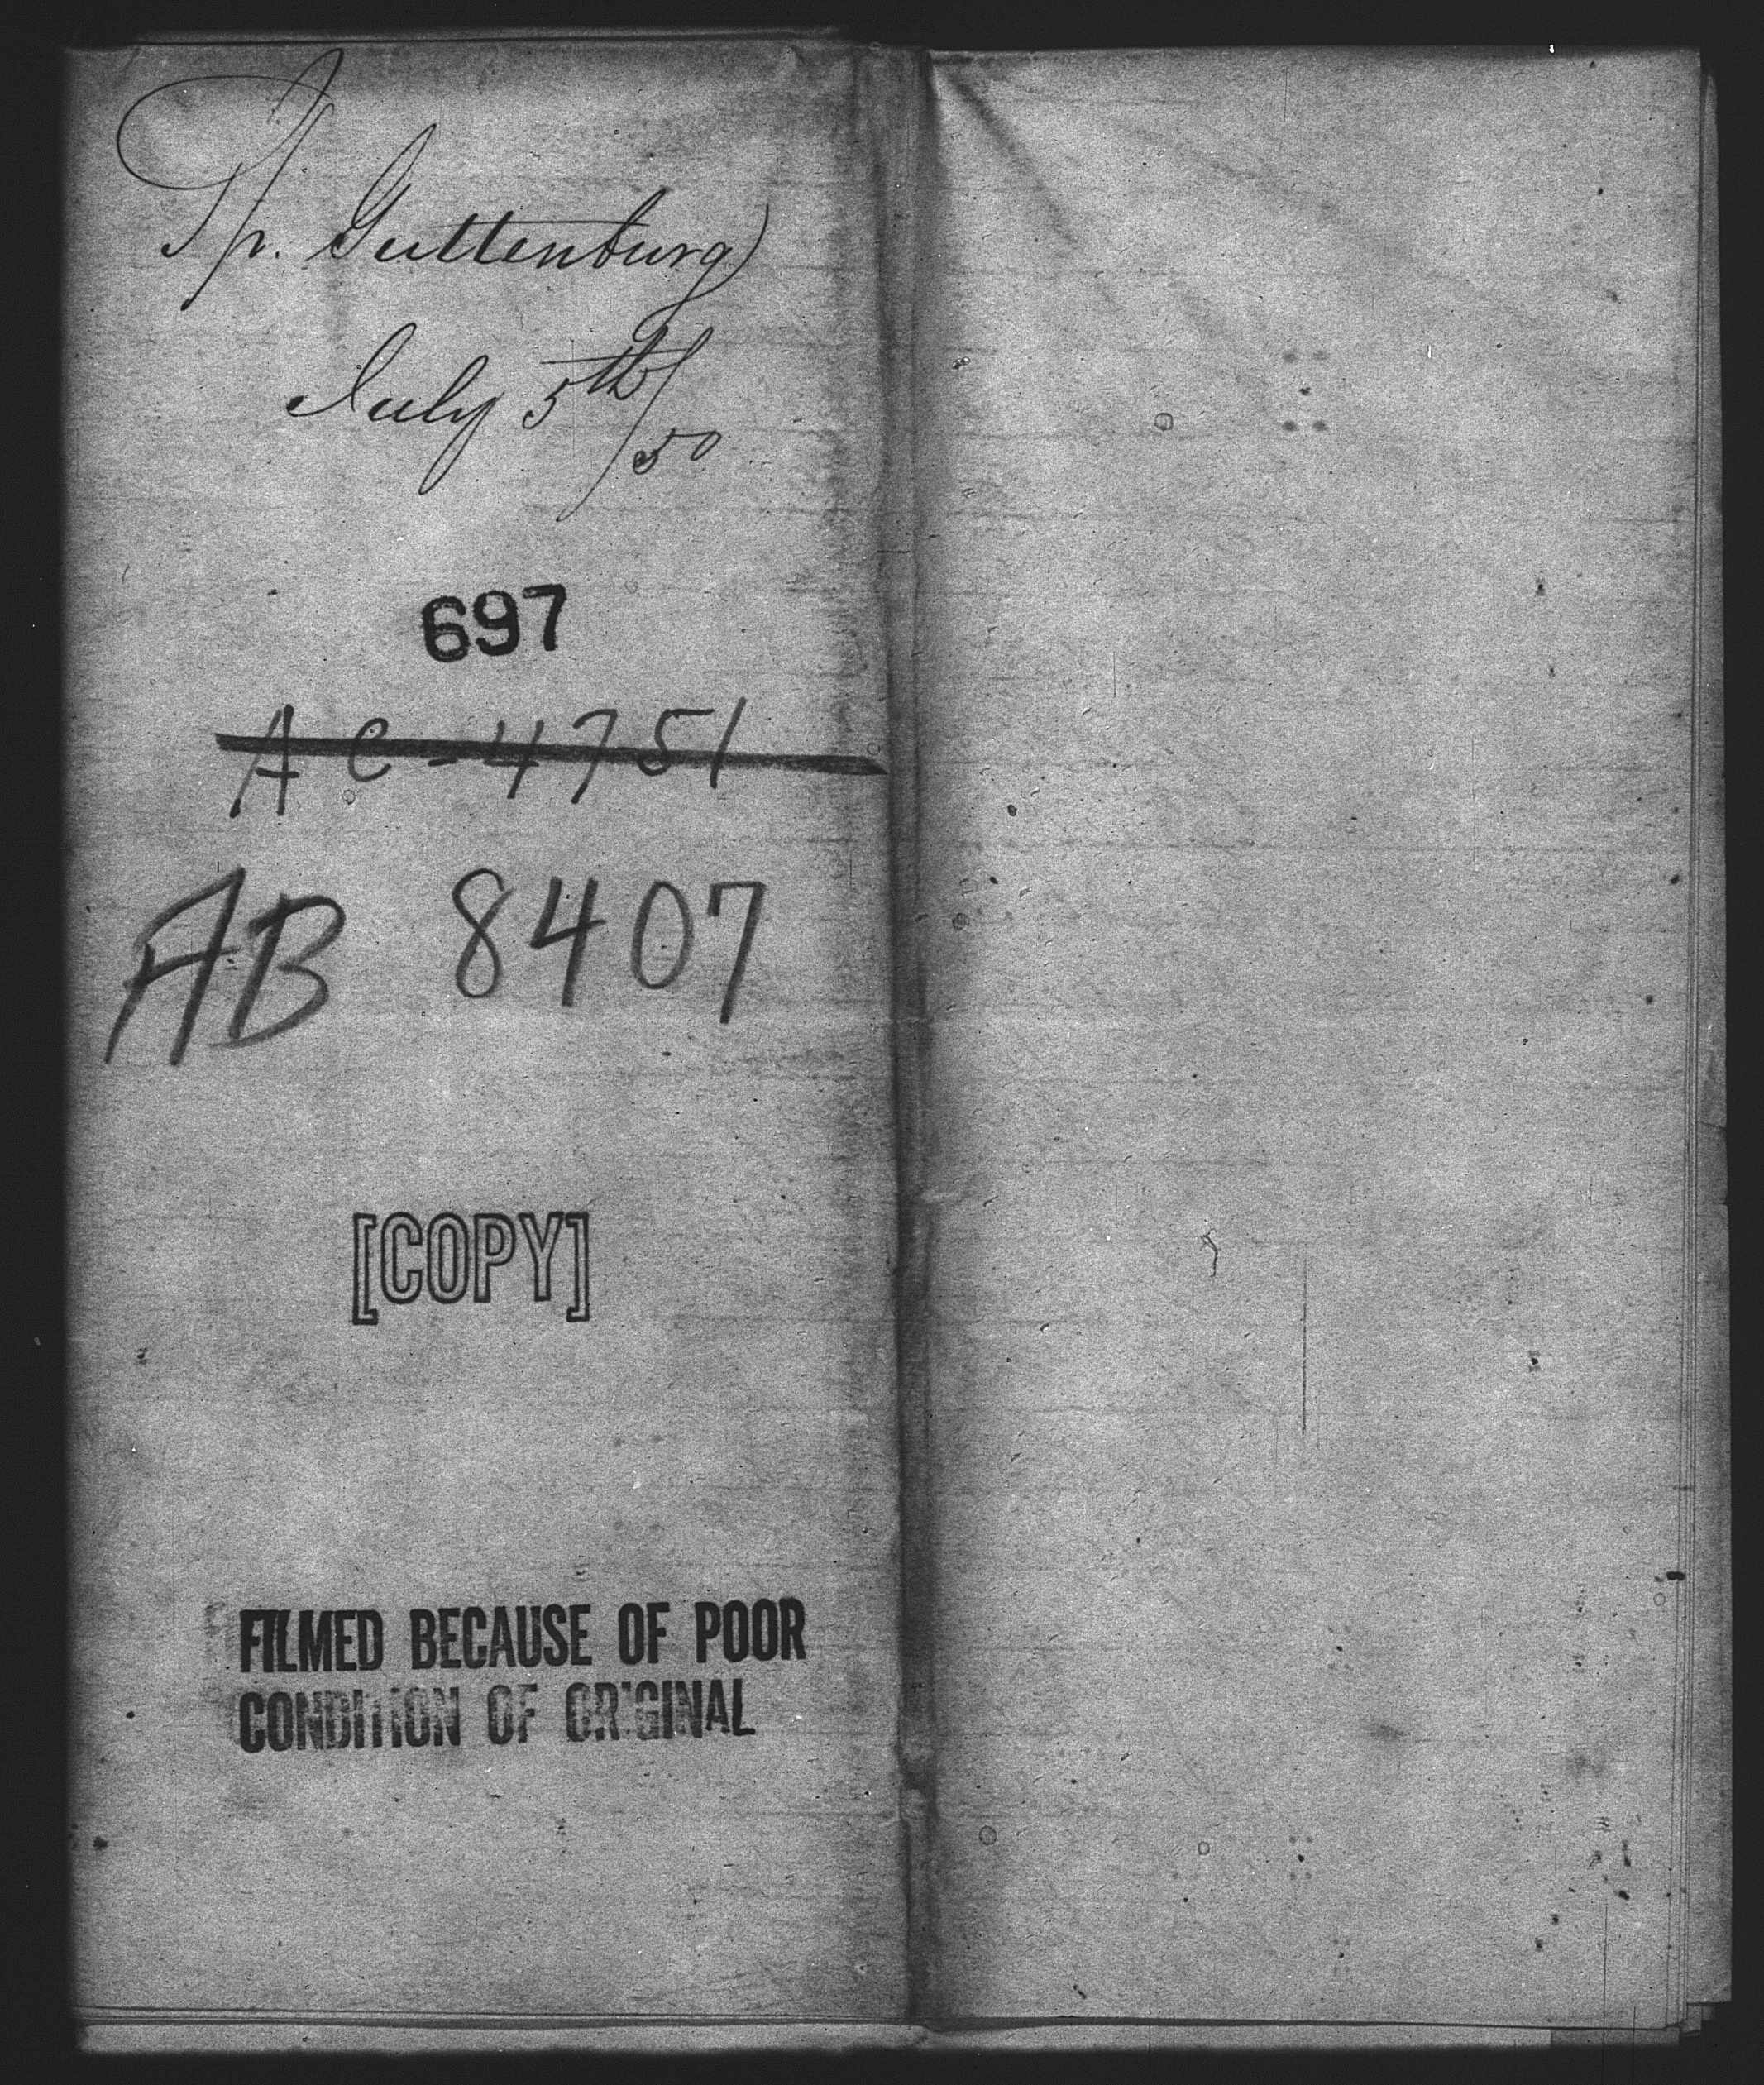 Sp. Guttenburg
July 5th/50
697
A C - 4751
AB 8407
[COPY]
FILMED BECAUSE OF POOR
CONDITION OF ORIGINAL